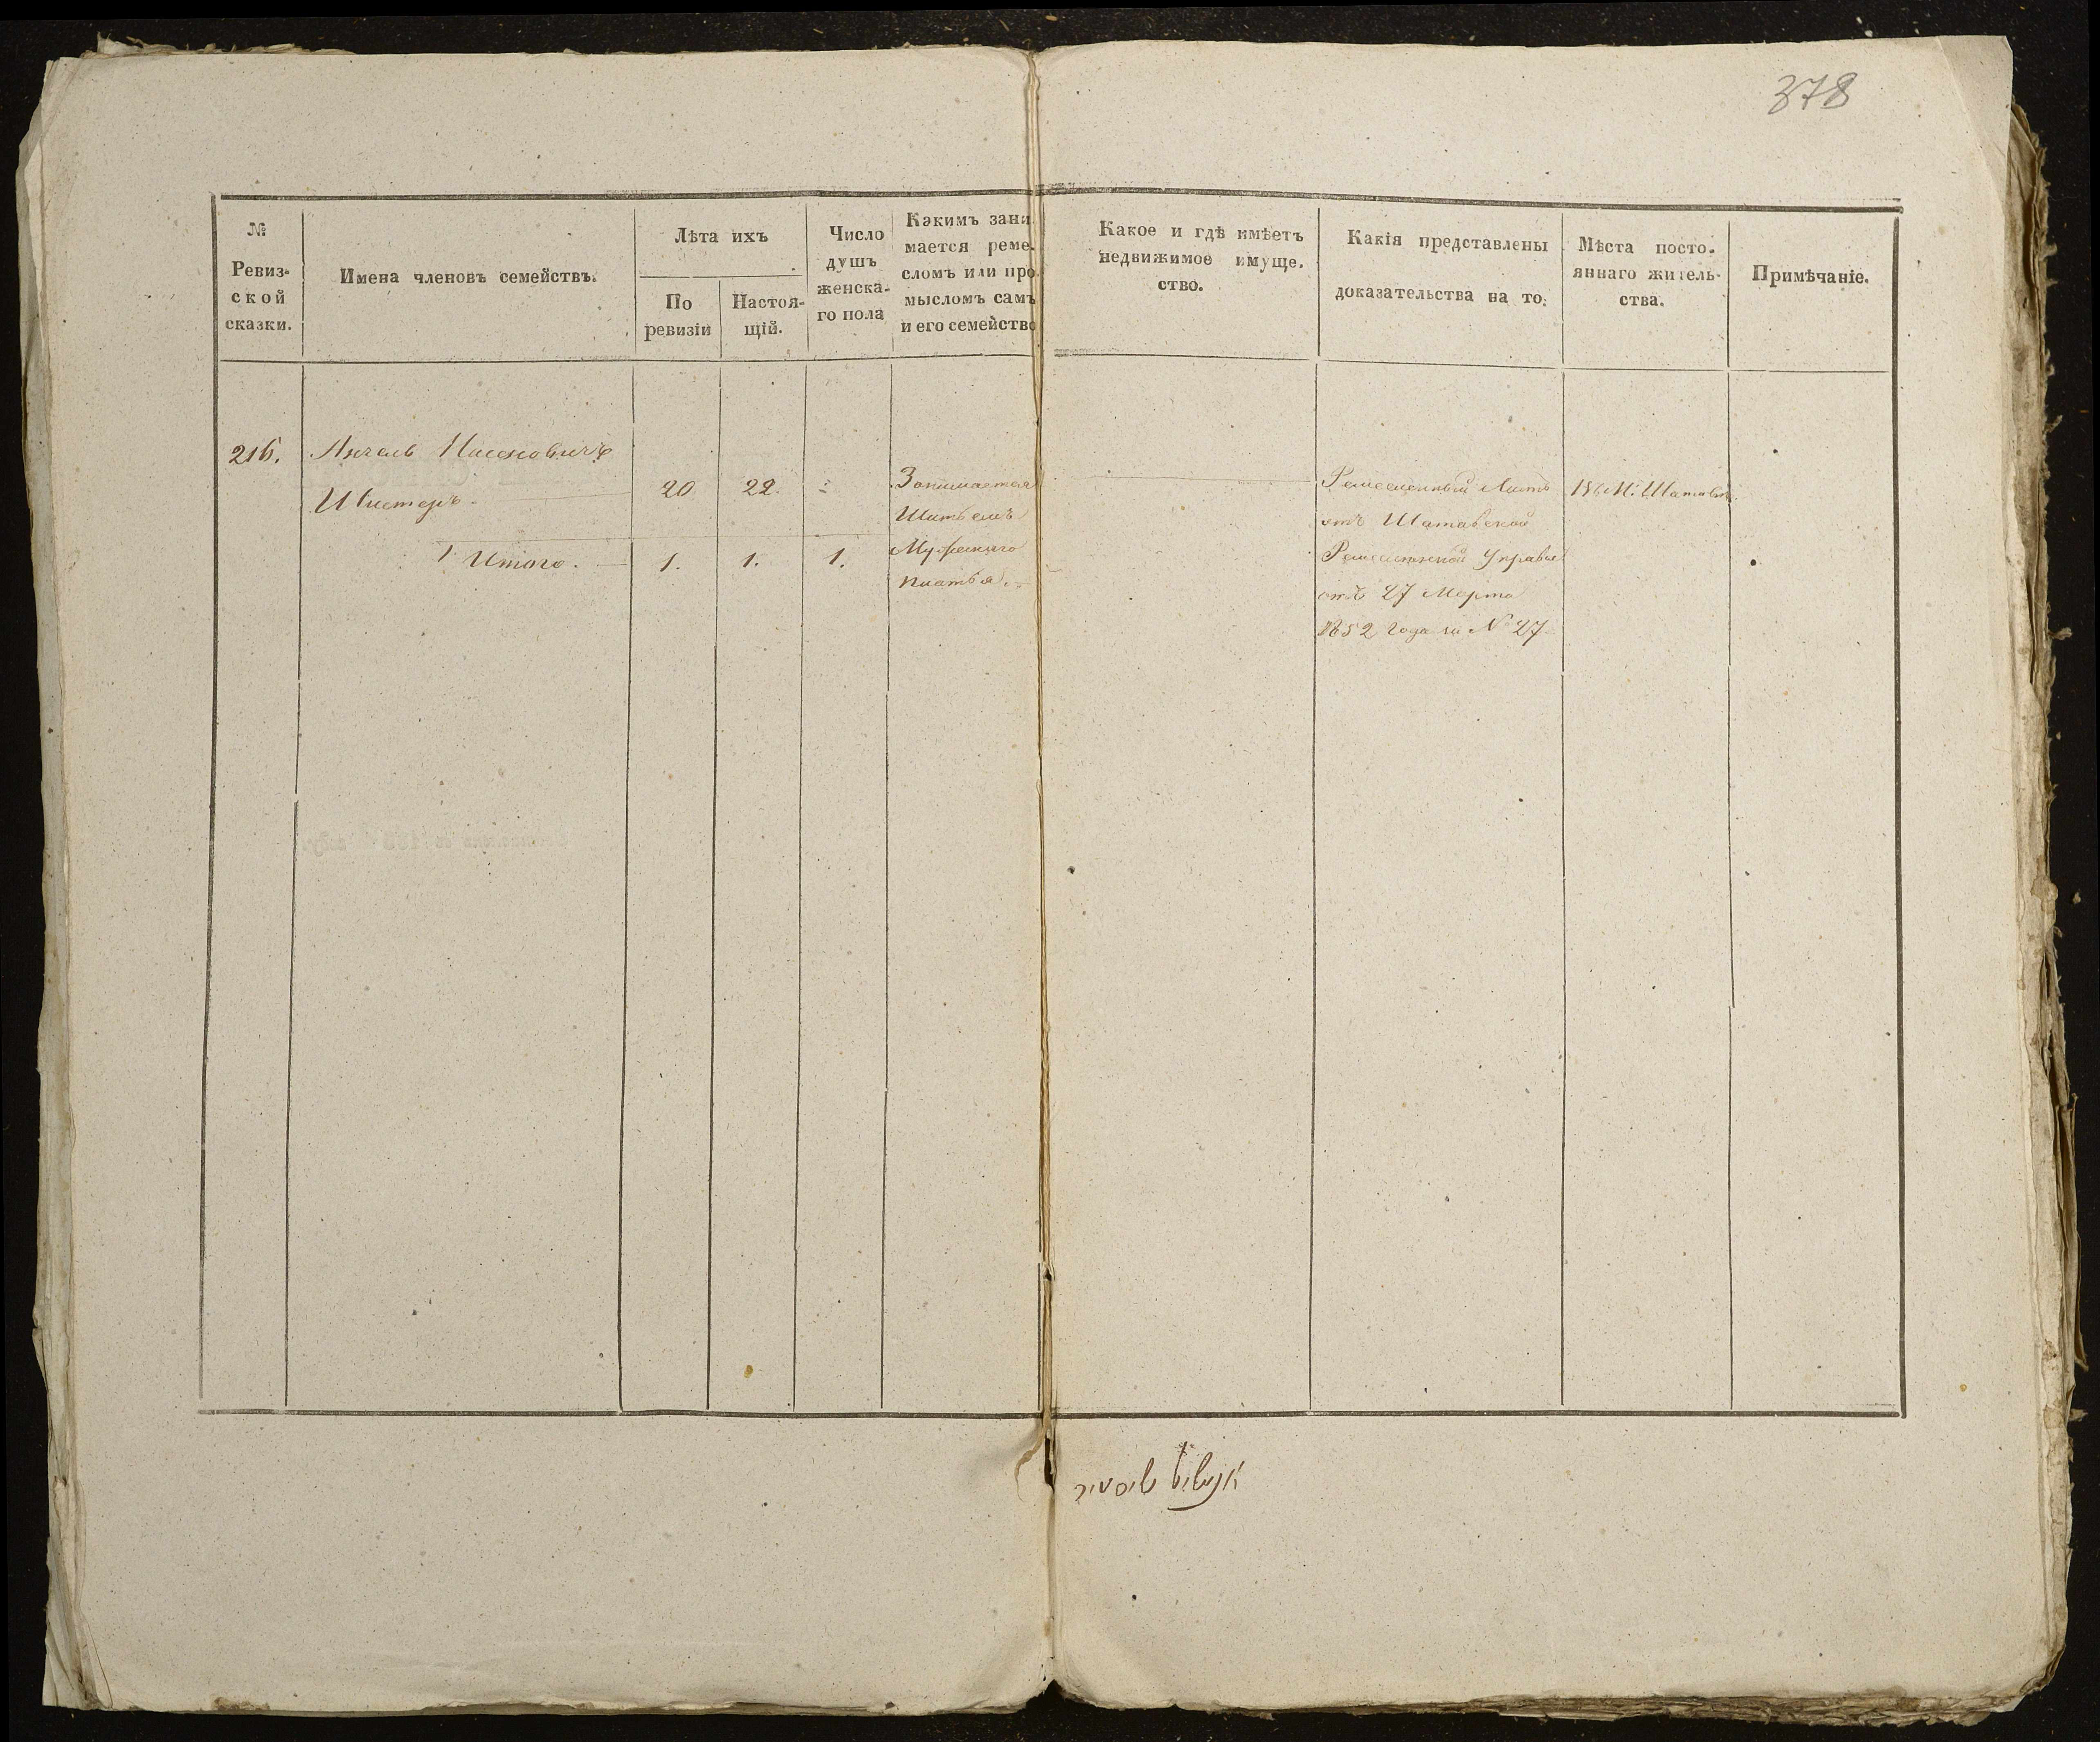 378
№
Ревиз-
ской
сказки.
Имена членовъ семействъ.
Лѣта ихъ
По
ревизіи
Настоя-
щій.
Число
душъ
женска-
го пола
Какимъ зани-
мается реме-
сломъ или про-
мысломъ самъ
и его семейство
Какое и гдѣ имѣетъ
недвижимое имуще-
ство.
Какія представлены
доказательства на то.
Мѣста посто-
яннаго житель-
ства.
Примѣчаніе.
216.
Янкель
20
22.
Занимается
Шитьемъ
Мужескаго
платья.
Ремесленный Листъ
отъ Шатавской
Ремесленной Управы
отъ 27 Марта
1852 Года за № 27
Итого.
1.
1.
1.